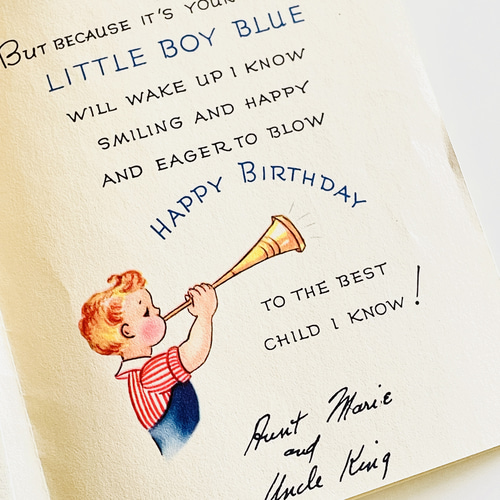 BUT BECAUSE IT'S YOUR
LITTLE BOY BLUE
WILL WAKE UP I KNOW
SMILING AND HAPPY
AND EAGER TO BLOW
HAPPY BIRTHDAY
TO THE BEST
CHILD I KNOW!
Aunt Marie
and
Uncle King